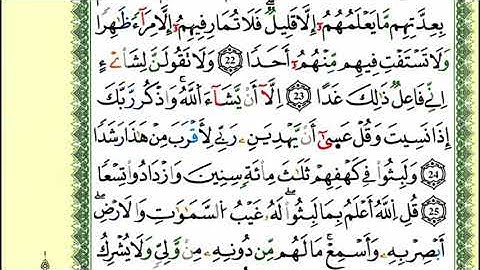 بِعِدَّتِهِم مَّا يَعْلَمُهُمُۥٓ إِلَّا قَلِيلٌ ۖ فَلَا تُمَارِ فِيهِمُۥٓ إِلَّا مِرَآءً ظَٰهِرًا
وَلَا تَسْتَفْتِ فِيهِم مِّنْهُمُۥٓ أَحَدًا 22 وَلَا تَقُولَنَّ لِشَا۟يْءٍ
إِنِّي فَاعِلٌ ذَٰلِكَ غَدًا 23 إِلَّآ أَنْ يَّشَآءَ ٱللَّهُ ۚ وَٱذْكُر رَّبَّكَ
إِذَا نَسِيتَ وَقُلْ عَسَىٰٓ أَنْ يَّهْدِيَنِۦ رَبِّي لِأَقْرَبَ مِنْ هَٰذَا رَشَدًا
24 وَلَبِثُوا۟ فِي كَهْفِهِمْ ثَلَٰثَ مِا۟ئَةٍ سِنِينَ وَٱزْدَادُوا۟ تِسْعًا
25 قُلِ ٱللَّهُ أَعْلَمُ بِمَا لَبِثُوا۟ ۖ لَهُۥ غَيْبُ ٱلسَّمَٰوَٰتِ وَٱلْأَرْضِ ۖ
أَبْصِرْ بِهِۦ وَأَسْمِعْ ۚ مَا لَهُم مِّن دُونِهِۦ مِنْ وَّلِيٍّ وَلَا يُشْرِكُ